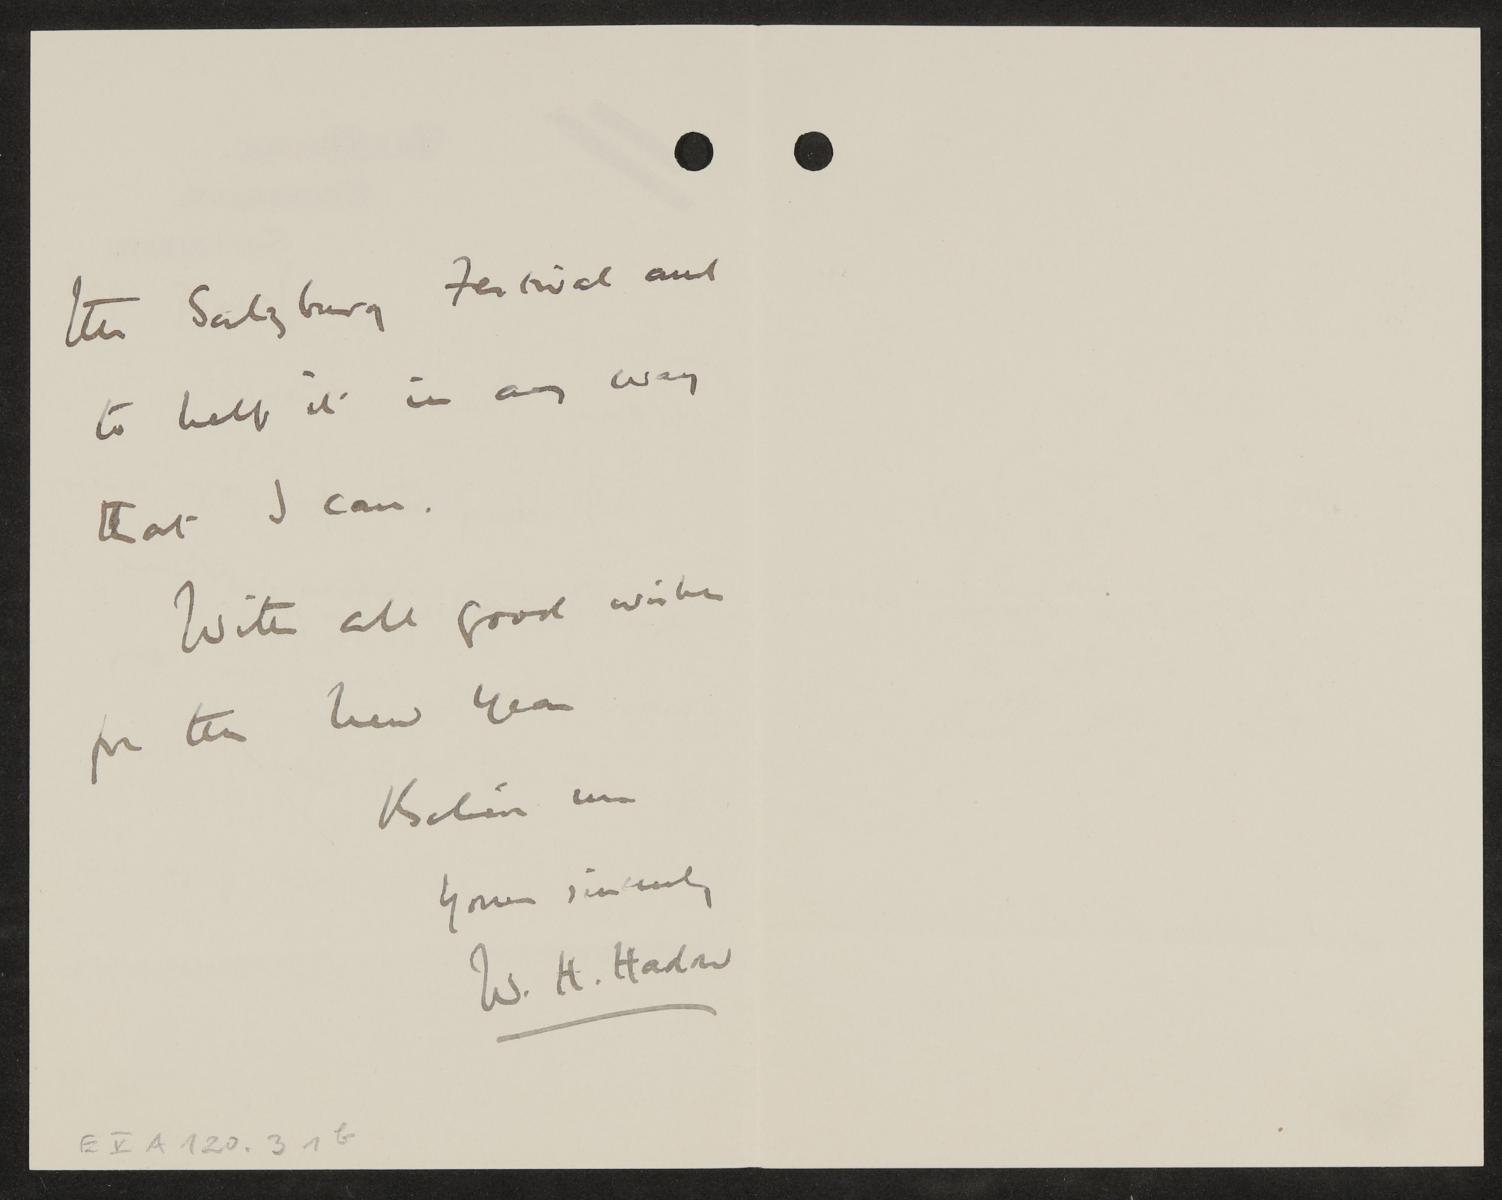 the Salzburg Festival and
to help it in any way
that I can.
With all good wishes
for the New Year
Believe me
Yours sincerely
W. H. Hadow
E V A 120. 3 1 b